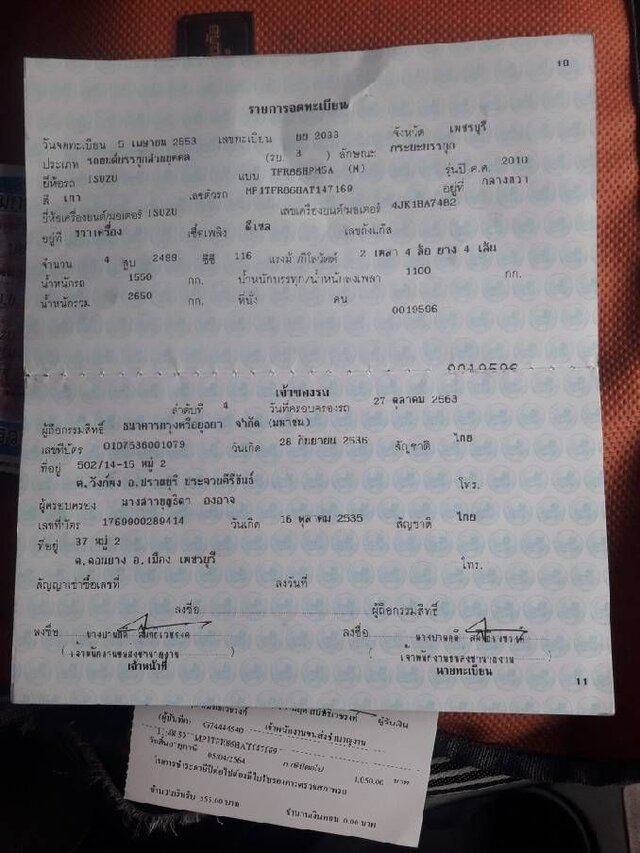 10
รายการจดทะเบียน
วันจดทะเบียน 5 เมษายน 2553 เลขทะเบียน 2033 จังหวัด เพชรบุรี
ประเภท รถยนต์บรรทุกส่วนบุคคล (รย. 3 ) ลักษณะ กระบะบรรทุก
ยี่ห้อรถ ISUZU แบบ TFR86HPM5A (M) รุ่นปี ค.ศ. 2010
สี เทา เลขตัวรถ MP1TFR86HAT147169 อยู่ที่ กลางขวา
ยี่ห้อเครื่องยนต์/มอเตอร์ ISUZU เลขเครื่องยนต์/มอเตอร์ 4JK1HA7482
อยู่ที่ ขวาเครื่อง เชื้อเพลิง ดีเซล เลขถังแก๊ส
จำนวน 4 สูบ 2499 ซีซี 116 แรงม้า/กิโลวัตต์ 2 เพลา 4 ล้อ ยาง 4 เส้น
น้ำหนักรถ 1550 กก. น้ำหนักบรรทุก/น้ำหนักลงเพลา 1100 กก.
น้ำหนักรวม 2650 กก. ที่นั่ง คน
0019596
0019596
เจ้าของรถ
ลำดับที่ 4 วันที่ครอบครองรถ 27 ตุลาคม 2563
ผู้ถือกรรมสิทธิ์ ธนาคารกรุงศรีอยุธยา จำกัด (มหาชน)
เลขที่บัตร 0107536001079 วันเกิด 28 กันยายน 2536 สัญชาติ ไทย
ที่อยู่ 502/14-15 หมู่ 2
ต.วังก์พง อ.ปราณบุรี ประจวบคีรีขันธ์ โทร.
ผู้ครอบครอง นางสาวยุสธิดา องอาจ
เลขที่บัตร 1769900289414 วันเกิด 16 ตุลาคม 2535 สัญชาติ ไทย
ที่อยู่ 37 หมู่ 2
ต.ดอนยาง อ.เมือง เพชรบุรี โทร.
สัญญาเช่าซื้อเลขที่ ลงวันที่
ลงชื่อ ผู้ถือกรรมสิทธิ์
ลงชื่อ ลงชื่อ
(เจ้าพนักงานขนส่งชำนาญงาน) (เจ้าพนักงานขนส่งชำนาญงาน)
เจ้าหน้าที่ นายทะเบียน
11
ผู้รับเงิน
เจ้าพนักงานขนส่งชำนาญงาน
MP1TFR86HAT147169
วันสิ้นอายุภาษี 05/04/2564 1,050.00 บาท
จำนวนเงินทอน 0.00 บาท